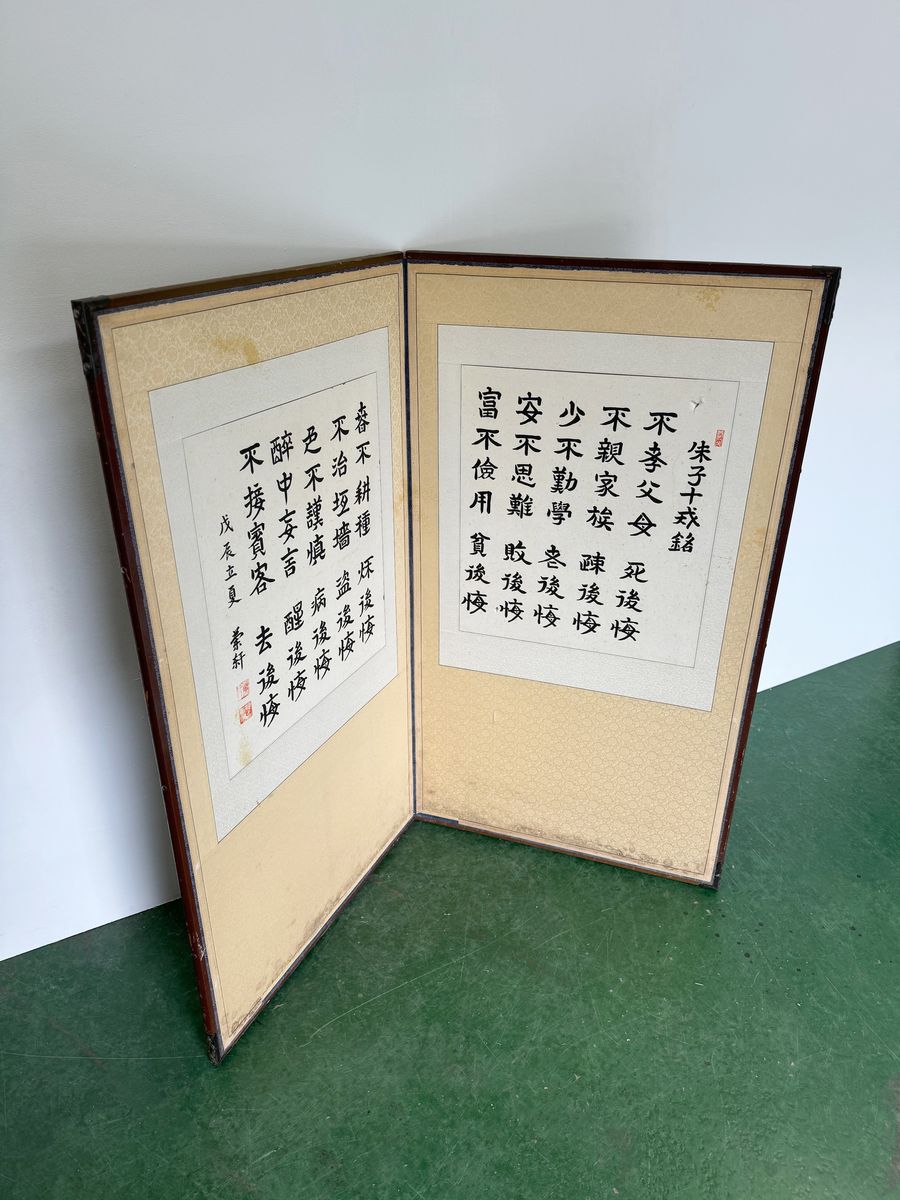 朱子十戒銘
不孝父母 死後悔
不親家族 疎後悔
少不勤學 老後悔
安不思難 敗後悔
富不儉用 貧後悔
春不耕種 秋後悔
不治垣墻 盜後悔
色不謹慎 病後悔
醉中妄言 醒後悔
不接賓客 去後悔
戊辰立夏